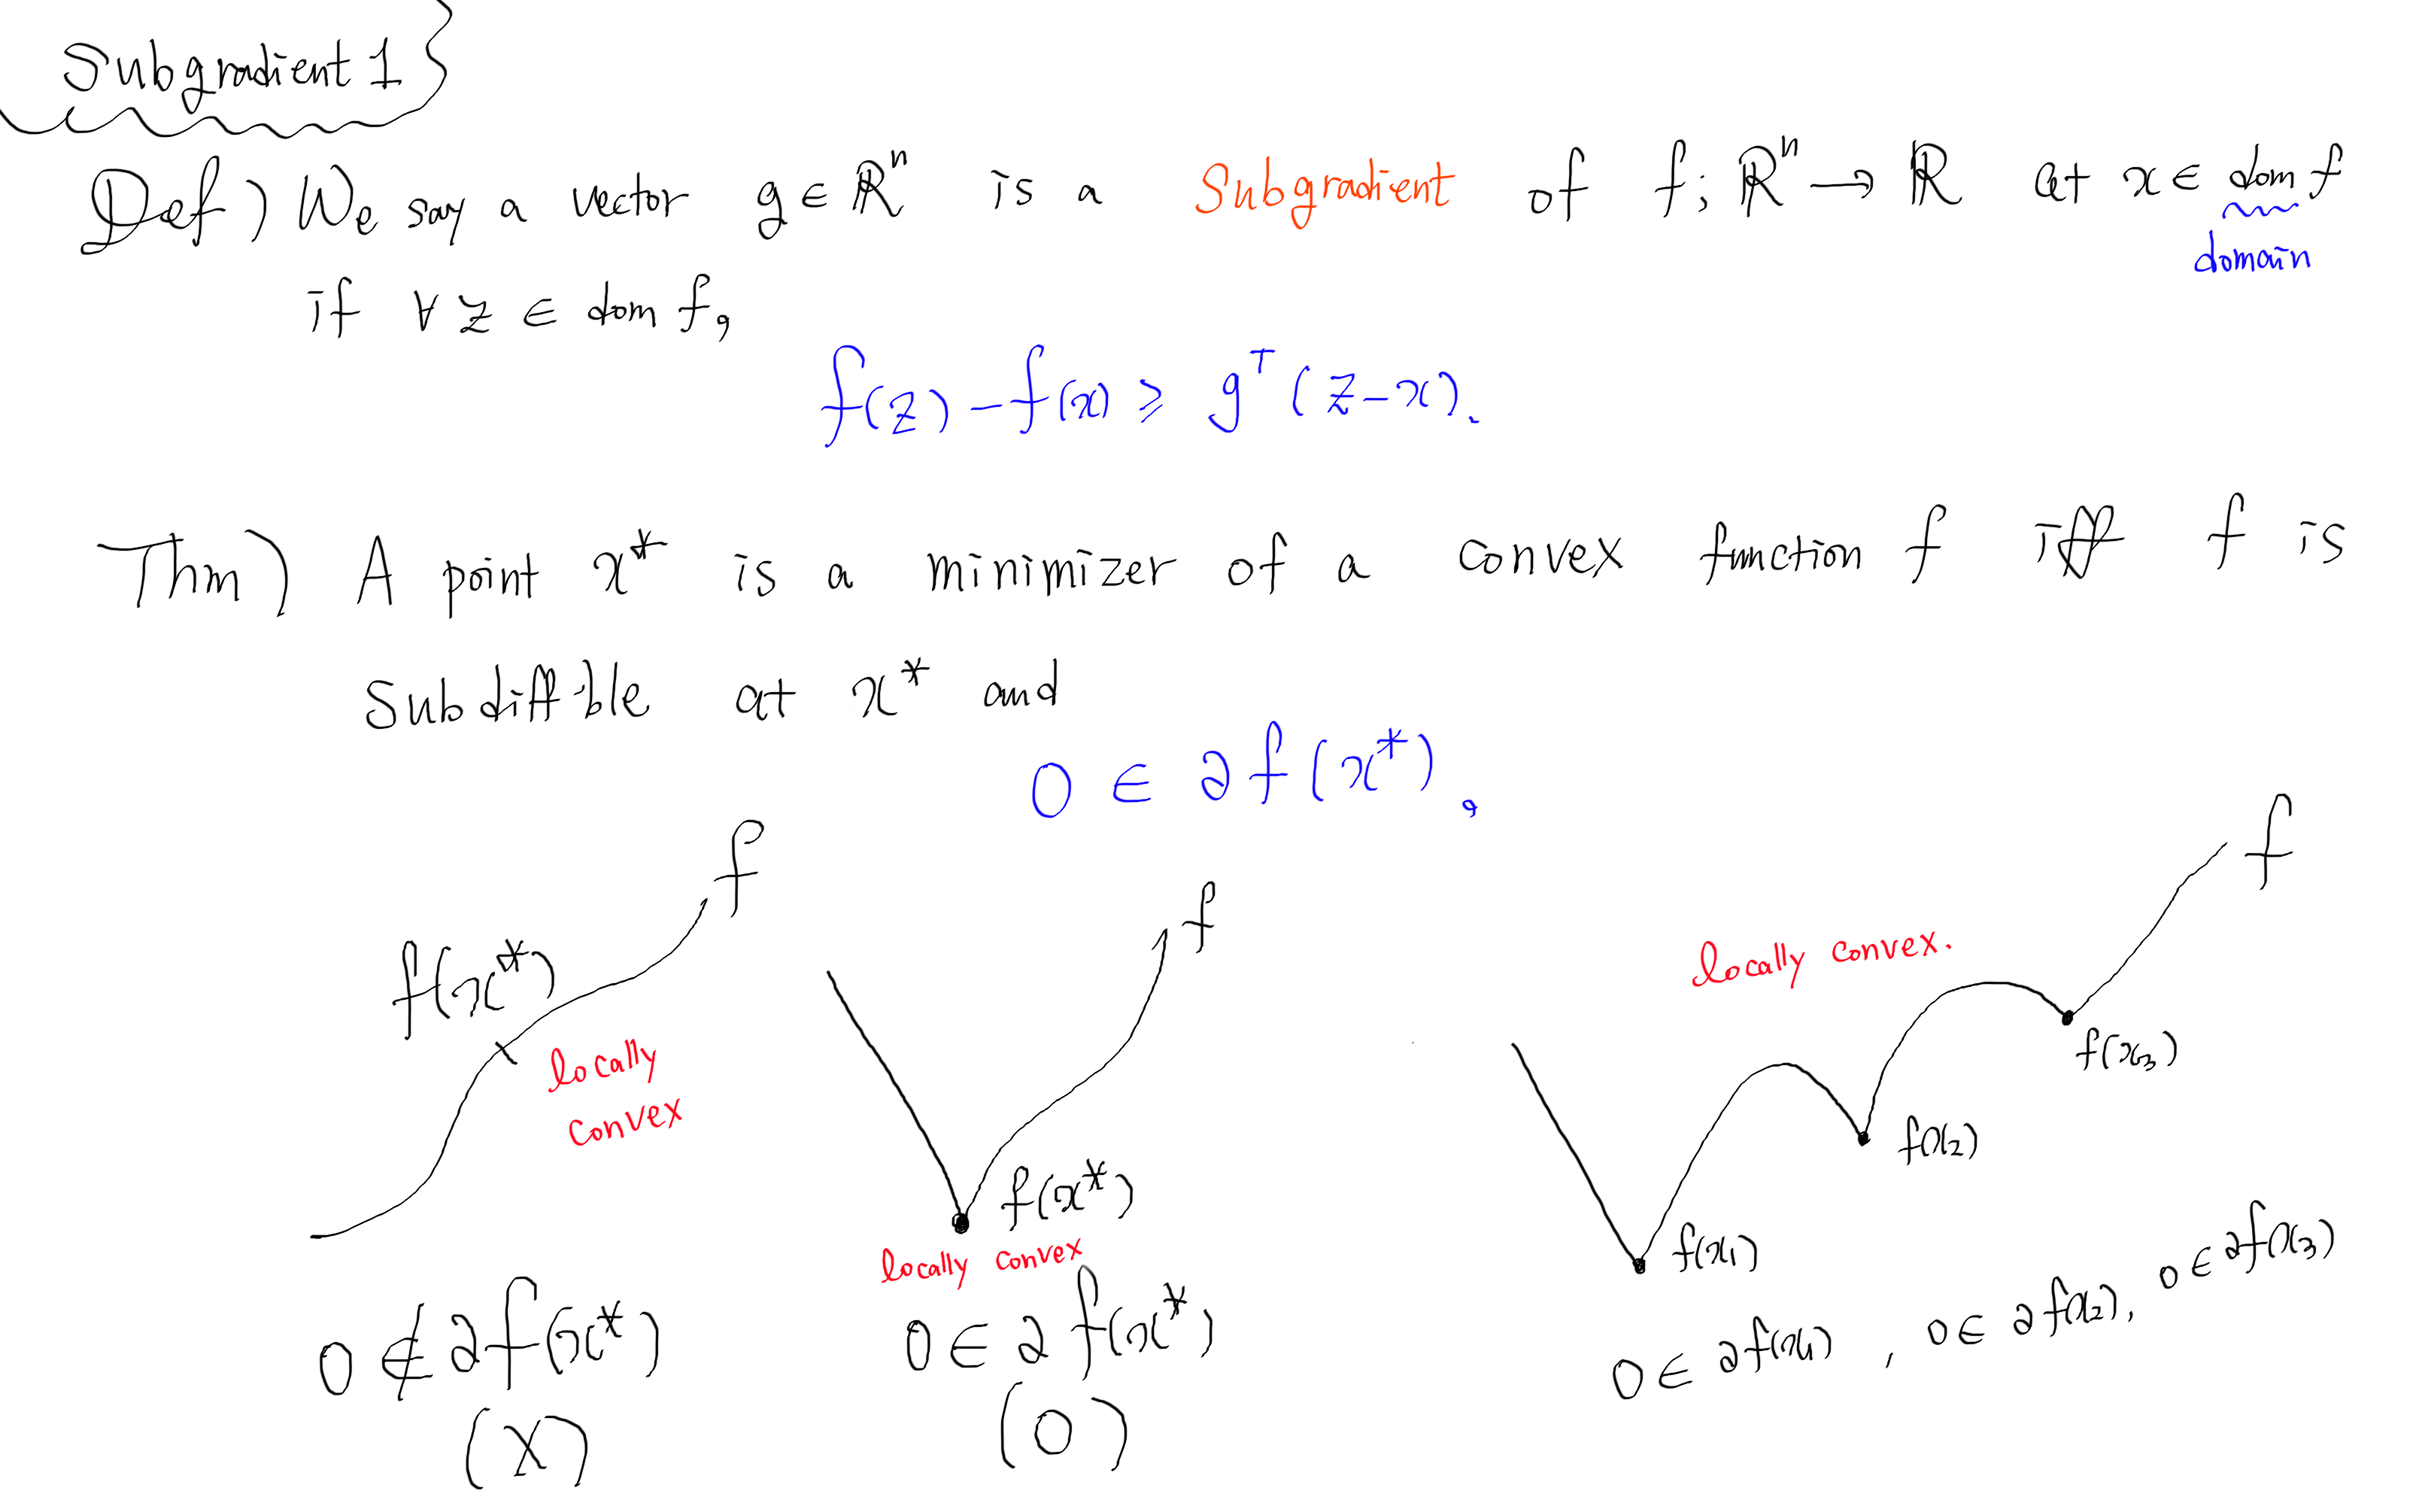 Subgradient 1
Def) We say a vector g ∈ ℝⁿ is a Subgradient of f: ℝⁿ → ℝ at x ∈ dom f
domain
if ∀ z ∈ dom f,
f(z) - f(x) ≥ gᵀ(z-x).
Thm) A point x* is a minimizer of a convex function f iff f is
Subdiff'ble at x* and
0 ∈ ∂f(x*),
f
f
f
f(x*)
locally convex.
locally
convex
f(x₃)
f(x₂)
f(x*)
f(x₁)
locally convex
0 ∉ ∂f(x*)
0 ∈ ∂f(x*)
0 ∈ ∂f(x₁), 0 ∈ ∂f(x₂), 0 ∈ ∂f(x₃)
(X)
(O)